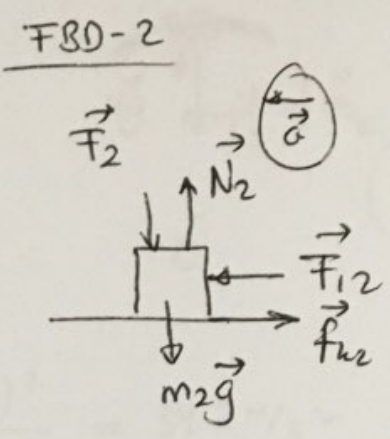 FBD-2
F⃗₂
a⃗
N⃗₂
F⃗₁₂
f⃗ₖ₂
m₂g⃗